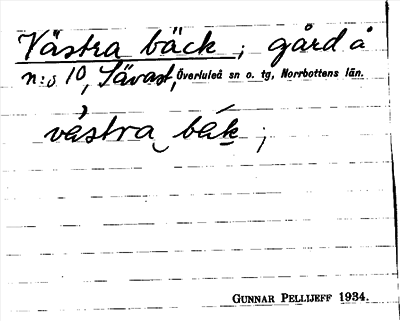 Västra bäck ; gård å
n:o 10, Sävast, Överluleå sn o. tg, Norrbottens län.
västra bäk ;
GUNNAR PELLIJEFF 1934.